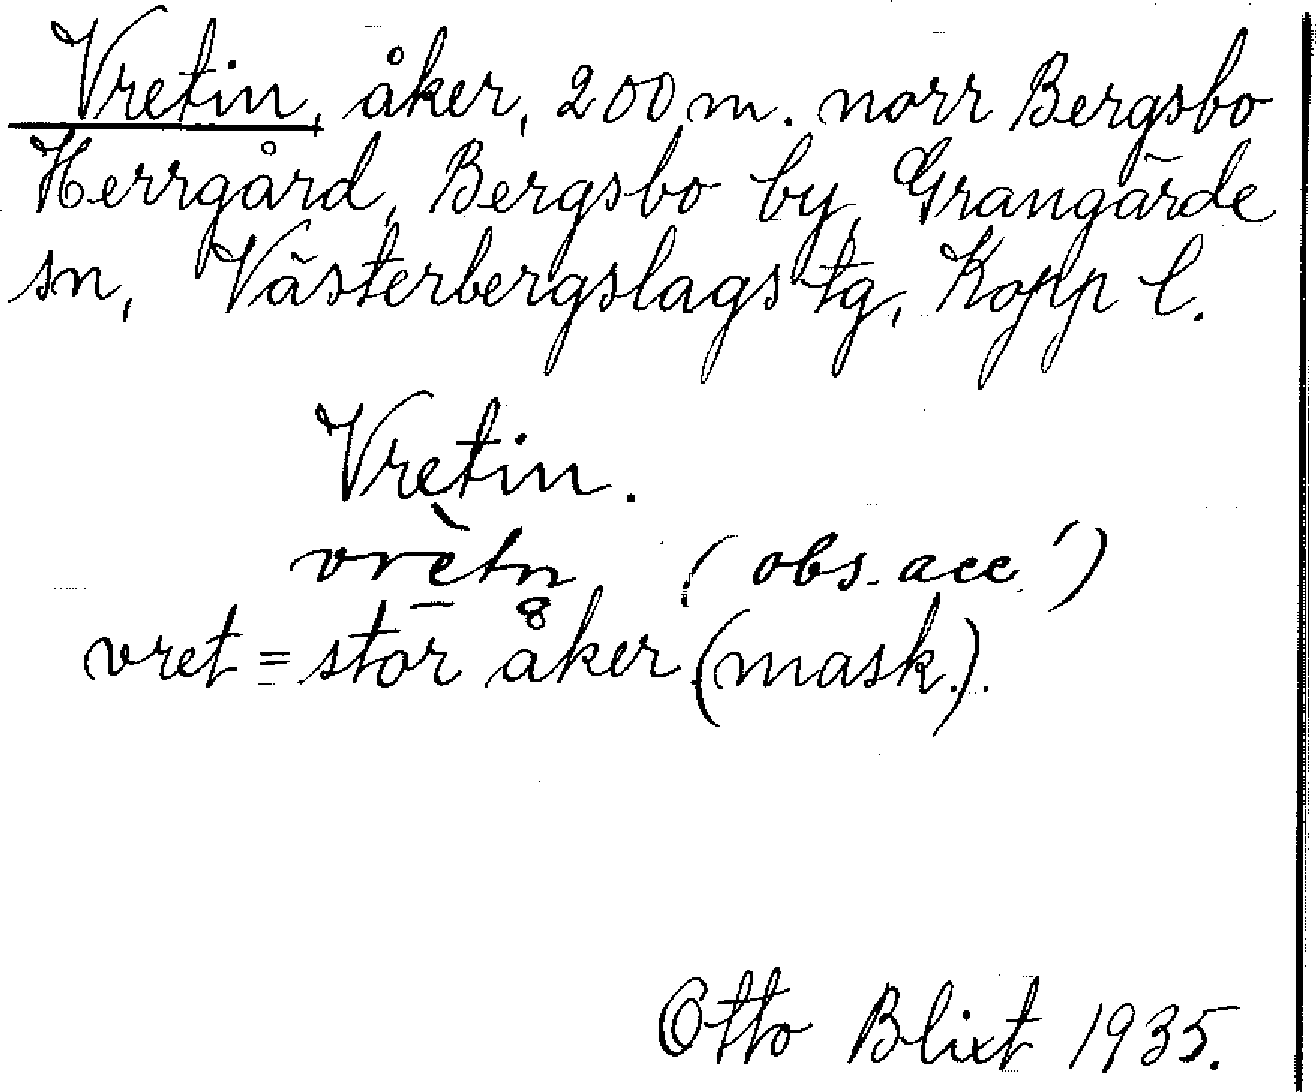 Vretin, åker, 200 m. norr Bergsbo
Herrgård, Bergsbo by, Grangärde
sn, Västerbergslags tg, Kopp l.
Vretin.
vrètn (obs. acc.')
vret = stor åker (mask.).
Otto Blixt 1935.